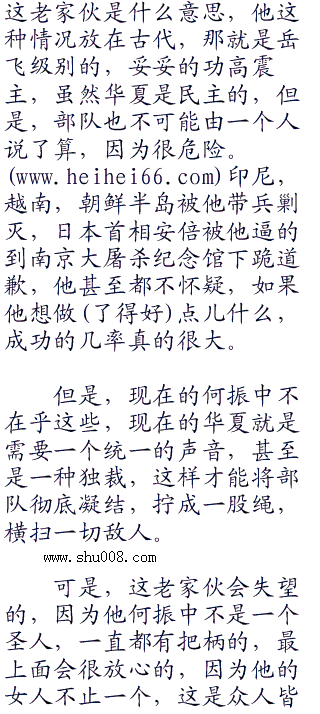 这老家伙是什么意思，他这
种情况放在古代，那就是岳
飞级别的，妥妥的功高震
主，虽然华夏是民主的，但
是，部队也不可能由一个人
说了算，因为很危险。
(www.heihei66.com)印尼，
越南，朝鲜半岛被他带兵剿
灭，日本首相安倍被他逼的
到南京大屠杀纪念馆下跪道
歉，他甚至都不怀疑，如果
他想做(了得好)点儿什么，
成功的几率真的很大。
但是，现在的何振中不
在乎这些，现在的华夏就是
需要一个统一的声音，甚至
是一种独裁，这样才能将部
队彻底凝结，拧成一股绳，
横扫一切敌人。
www.shu008.com
可是，这老家伙会失望
的，因为他何振中不是一个
圣人，一直都有把柄的，最
上面会很放心的，因为他的
女人不止一个，这是众人皆